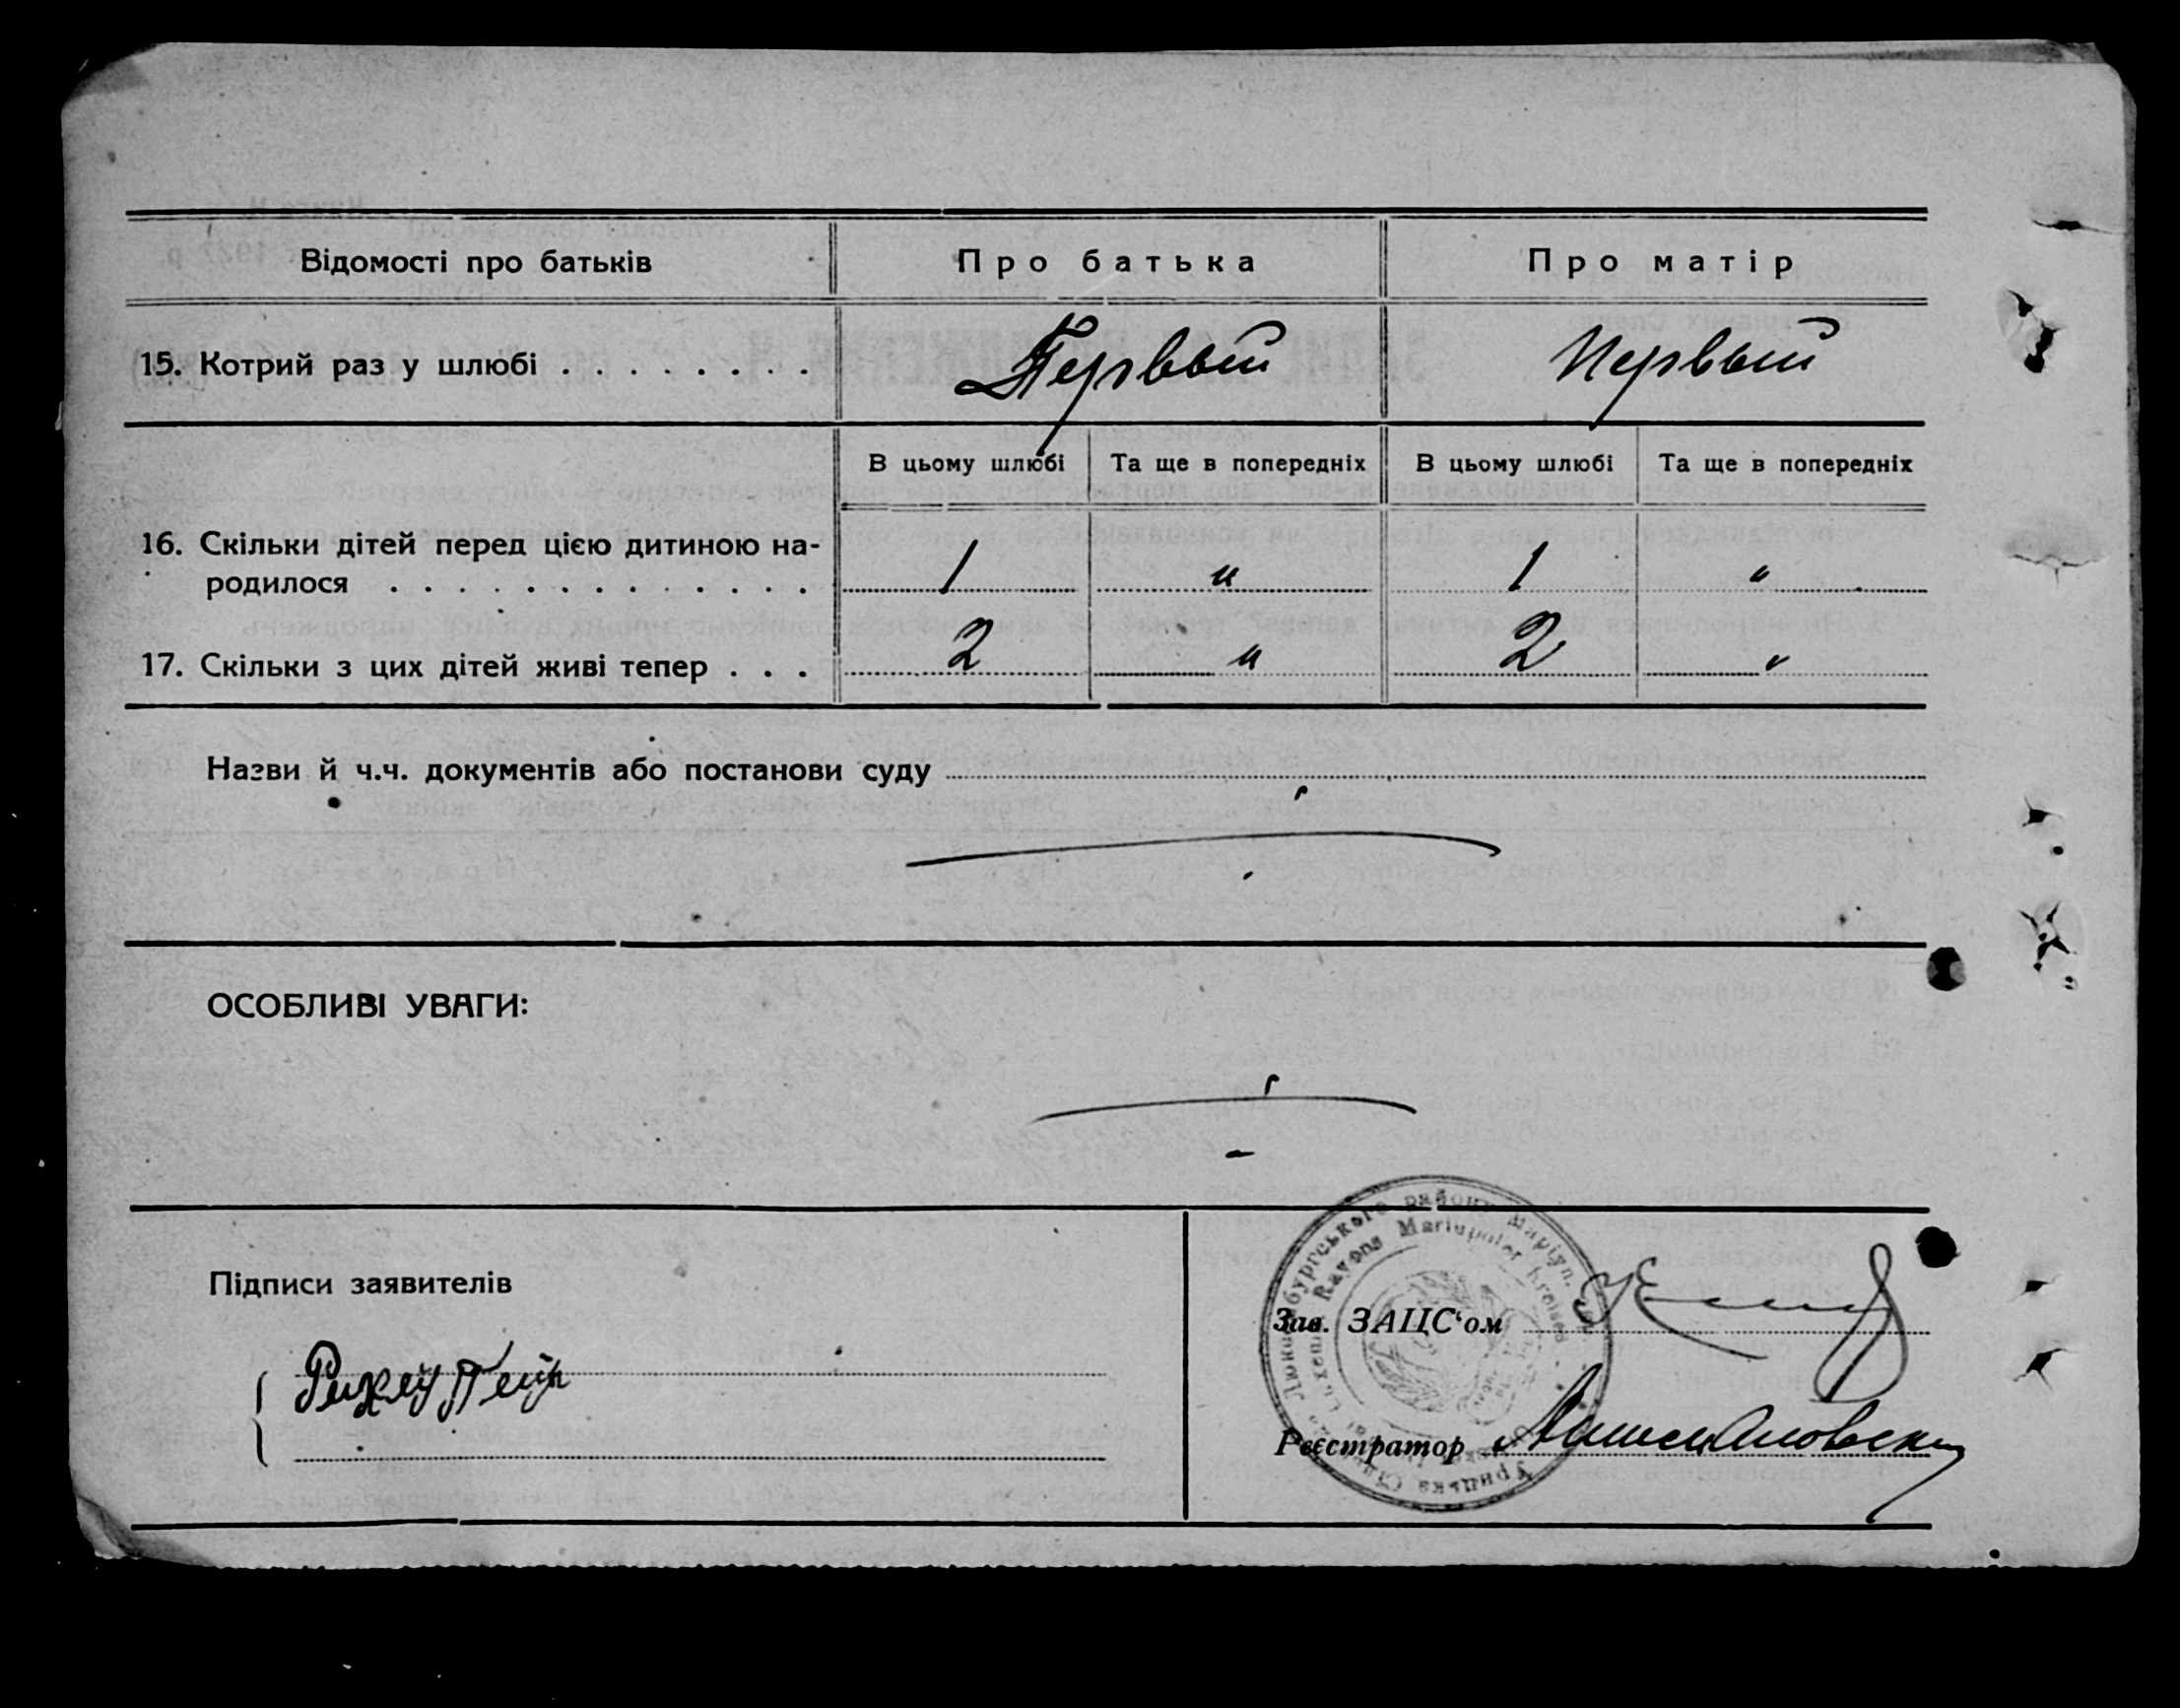 Відомості про батьків
Про батька
Про матір
15. Котрий раз у шлюбі . . . . . . . .
Первый
Первый
В цьому шлюбі
Та ще в попередніх
В цьому шлюбі
Та ще в попередніх
16. Скільки дітей перед цією дитиною на-
родилося . . . . . . . . . . . . .
1
"
1
"
17. Скільки з цих дітей живі тепер . . .
2
"
2
"
Назви й ч.ч. документів або постанови суду
ОСОБЛИВІ УВАГИ:
Підписи заявителів
Зав. ЗАЦС'ом
Реєстратор
района Маріуп.
Rayons Mariupoler Kreises